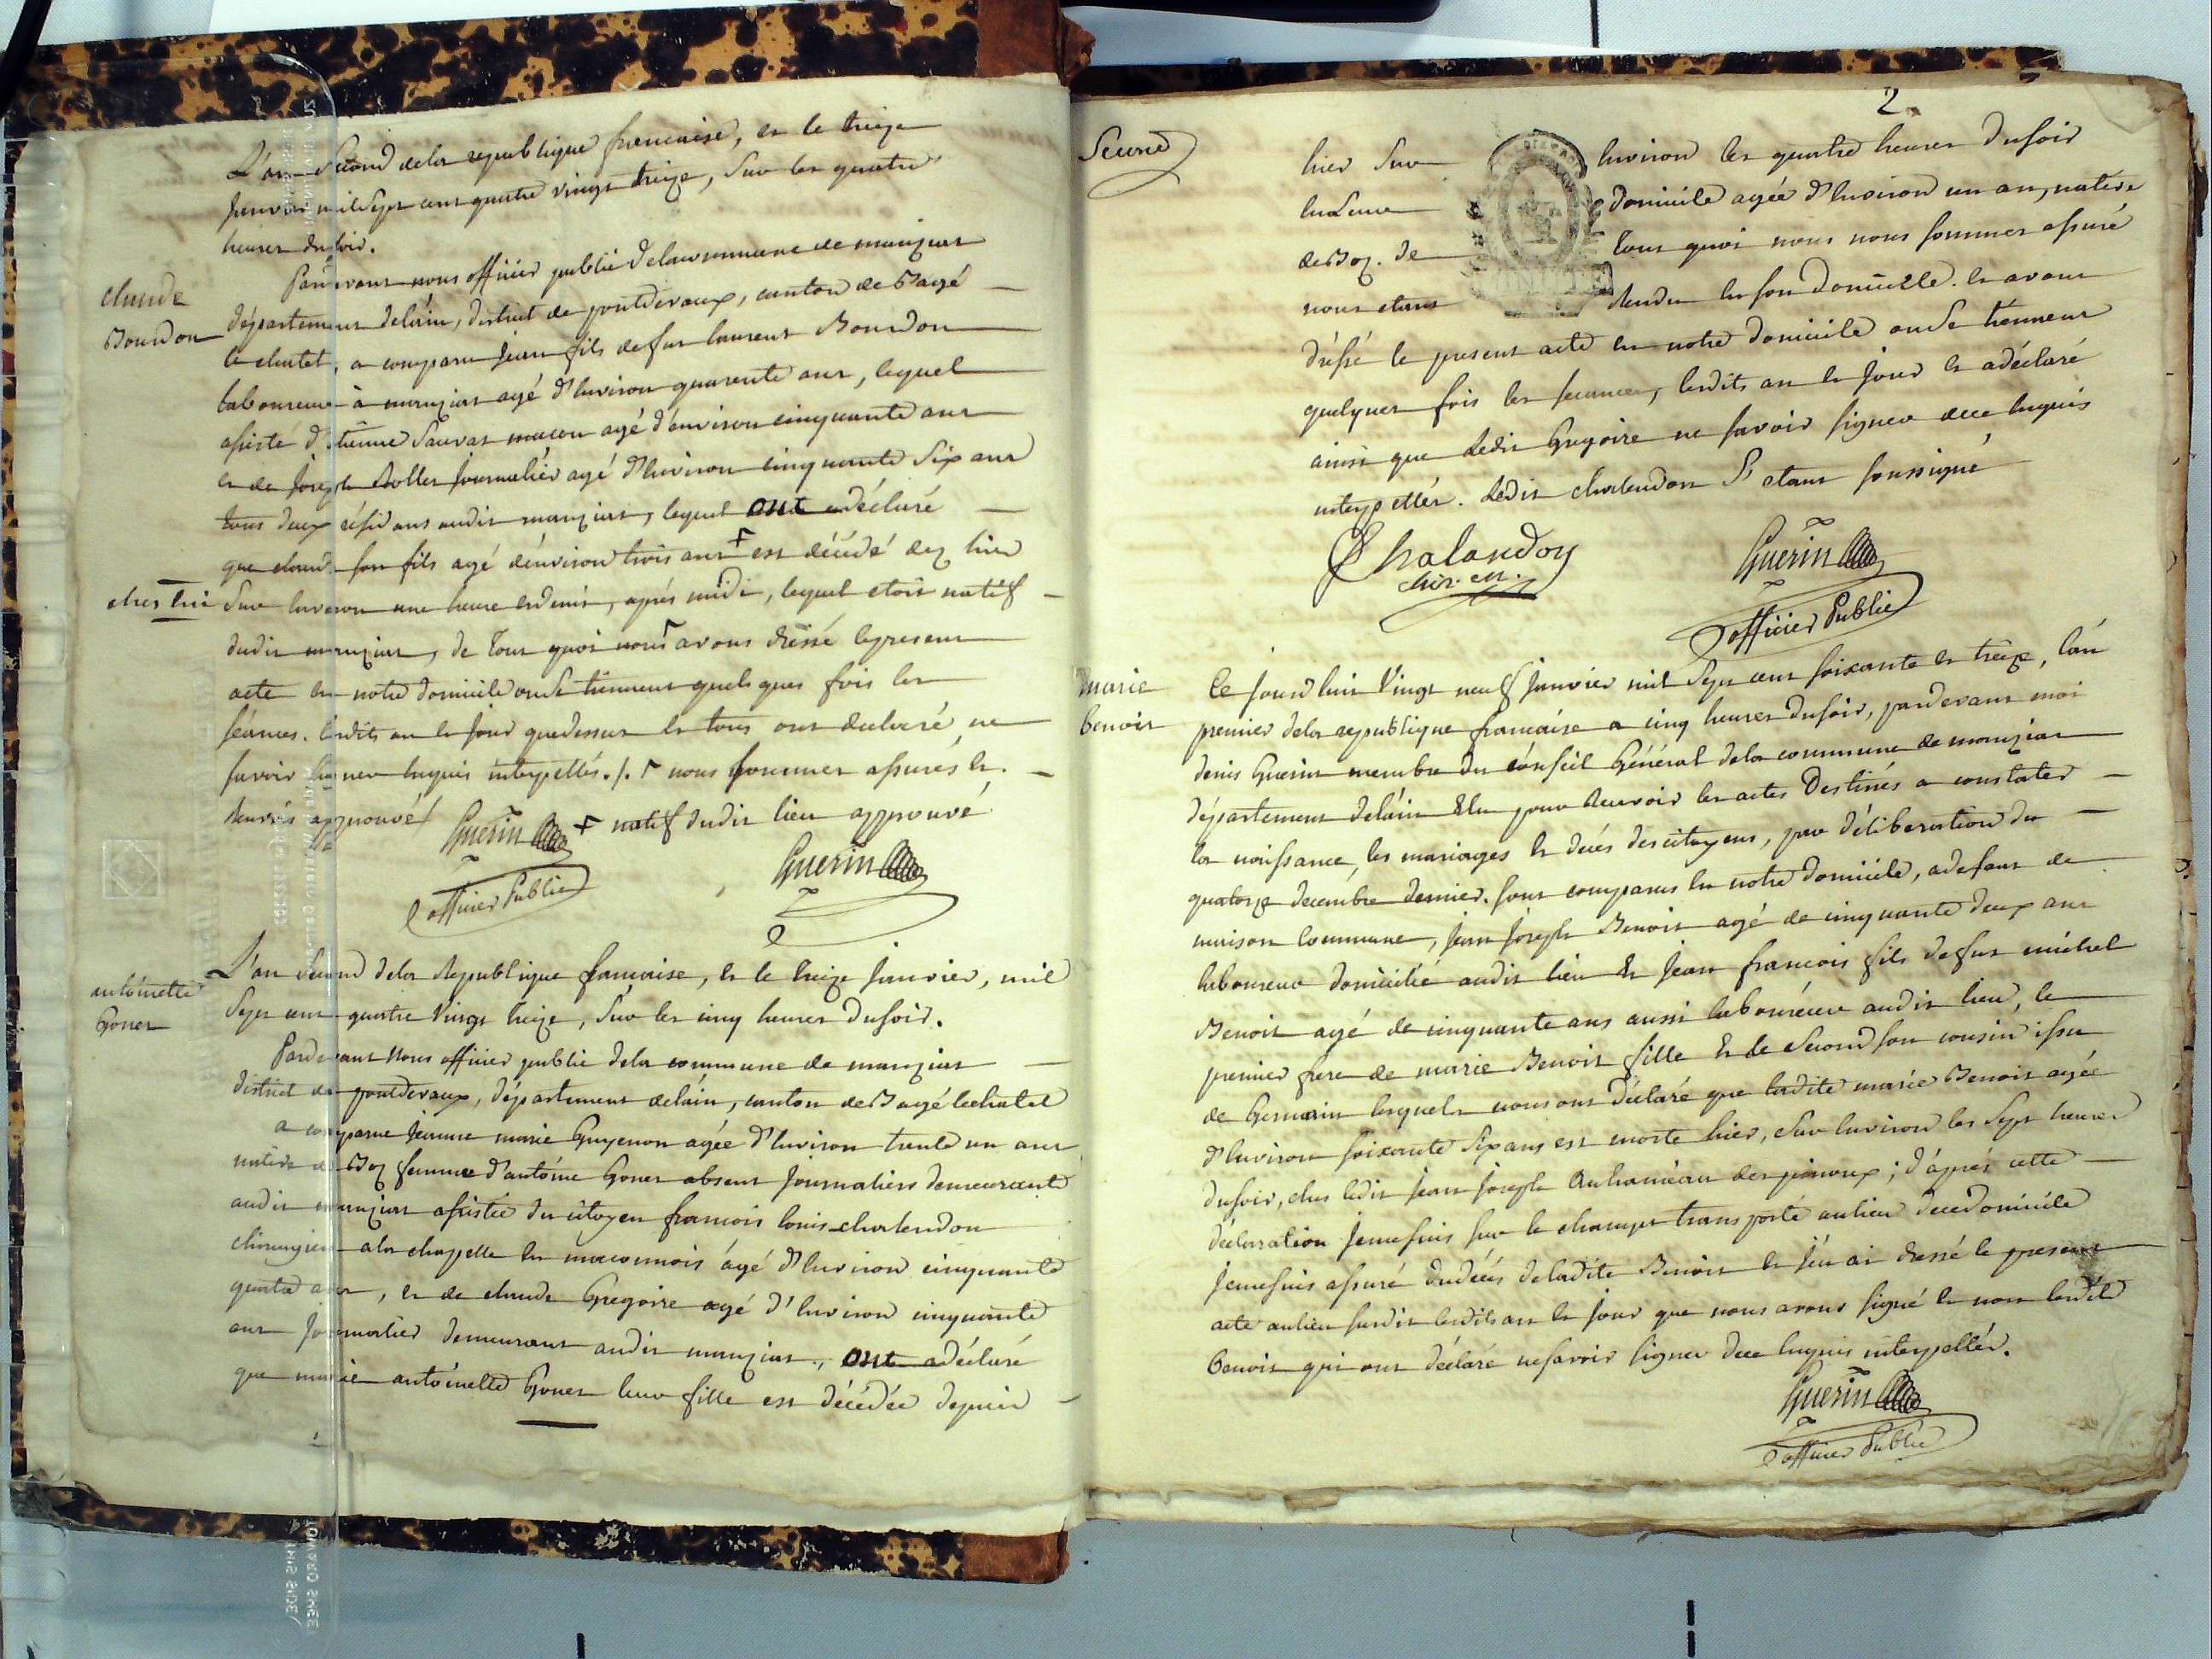 L'an Second dela republique francaise, et le treize
Janvier mil Sept cent quatre vingt treize, Sur les quatre
heures du soir.
Pardevant nous officier public delacommune de manziat
claude
Bourdon
département delain, district de pontdevaux, canton de Bagé
le chatel, a comparu jean fils defut laurent Bourdon
laboureur à manziat agé d'Environ quarente ans, lequel
assisté d'Etienne Sauvat macon agé d'environ cinquante ans
et de Joseph Rollet Journalier agé d'Environ cinquante Six ans
tous deux résidans audit manziat, lequel ont adéclaré
que claud. son fils agé d'environ trois ans + est décédé dez hier
ches lui
Sur Environ une heure et demi, aprés midi, lequel etoit natif
dudit manziat, de tout quoi nous avons dréssé lepresent
acte en notre domicile ouse tiennent quelques fois les
séances. lesdits an et Jour quedessus et tous ont declaré ne
savoir signer Enquis intérpellés ./. nous sommes assurés et.
approuvé
Guerin
+ natif dudit lieu approuvé
officier Public
Guerin
antoinette
Gonet
L'an Second dela Republique francaise, et le treize Janvier, mil
Sept cent quatre Vingt treize, Sur les cinq heures dusoir.
Pardevant Nous officier public dela commune de manziat
district de pontdevaux, département delain, canton de Bagé lechatel
a comparue Jeanne marie Guyenon agée d'Environ trente un ans
native de Boz femme d'antoine Gonet absent Journaliers demeurante
audit manziat assistée du citoyen francois louis chalendon
chirurgien ala chapelle En maconnois agé d'Environ cinquante
quatre ans, et de claude Gregoire agé d'Environ cinquante
ans Journalier demeurant audit manziat, ont adéclaré
que marie antoinette Gonet leur fille est décédée depuis
2
Second
hier Sur Environ les quatre heures dusoir
domicile agée d'Environ un an, native
de Boz. de tout quoi nous nous sommes assuré
nous etant Rendu En son domicile. et avons
dréssé le present acte en notre domicile ouse tiennent
quelques fois les seances, lesdits an et Jour et adéclaré
ainsi que ledit Gregoire ne savoir signer dece Enquis
interpellés. ledit chalendon S'etant soussigné
Chalandon
chir. en.
Guerin
officier Public
Marie
benoit
Ce Jourd'hui Vingt neuf Janvier mil Sept cent soixante et treize, l'an
premier dela republique francaise a cinq heures dusoir, pardevant moi
denis Guerin membre du conseil Général dela commune de manziat
département delain Elu pour Recevoir les actes Destinés a constater
la naissance, les mariages et decés des citoyens, par déliberation du
quatorze decembre dernier. sont comparus En notre domicile, adefaut de
maison Commune, Jean Joseph Benoit agé de cinquante deux ans
laboureur domicilié audit lieu et Jean francois fils defut michel
Benoit agé de cinquante ans aussi laboureur audit lieu, le
premier frere de marie Benoit fille et le Second son cousin issu
de Germain lesquels nous ont Déclaré que ladite marie Benoit agée
d'Environ soixante Six ans est morte hier, Sur Environ les Sept heures
dusoir, ches ledit Jean Joseph Auhameau des pinoux ; d'aprés cette
déclaration Jeme suis sur le champt transporté aulieu dece domicile
Jemesuis assuré dudécés deladite Benoit et J'en ai dréssé le present
acte aulieu susdit lesdits an et Jour que nous avons signé et non lesdits
benoit qui ont déclaré ne savoir signer dece Enquis interpellés.
Guerin
officier Public